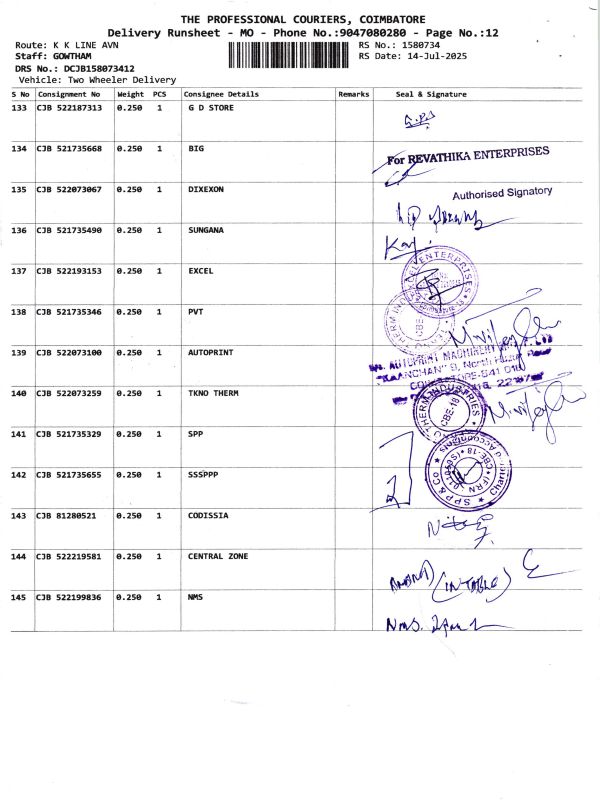 THE PROFESSIONAL COURIERS, COIMBATORE
Delivery Runsheet - MO - Phone No.:9047080280 - Page No.:12
Route: K K LINE AVN
RS No.: 1580734
Staff: GOWTHAM
RS Date: 14-Jul-2025
DRS No.: DCJB158073412
Vehicle: Two Wheeler Delivery
S No Consignment No Weight PCS Consignee Details Remarks Seal & Signature
133 CJB 522187313 0.250 1 G D STORE
134 CJB 521735668 0.250 1 BIG
For REVATHIKA ENTERPRISES
135 CJB 522073067 0.250 1 DIXEXON
Authorised Signatory
136 CJB 521735490 0.250 1 SUNGANA
137 CJB 522193153 0.250 1 EXCEL
EXCEL ENTERPRISES
138 CJB 521735346 0.250 1 PVT
139 CJB 522073100 0.250 1 AUTOPRINT
140 CJB 522073259 0.250 1 TKNO THERM
THERM INDUSTRIES
CBE-18
141 CJB 521735329 0.250 1 SPP
SPP & Co
142 CJB 521735655 0.250 1 SSSPPP
143 CJB 81280521 0.250 1 CODISSIA
144 CJB 522219581 0.250 1 CENTRAL ZONE
145 CJB 522199836 0.250 1 NMS
NMS